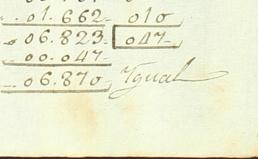 01.662 010
06.823 047
00.047
06.870 Ygual